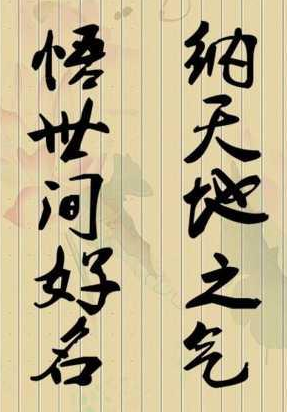 纳天地之气
悟世间好名